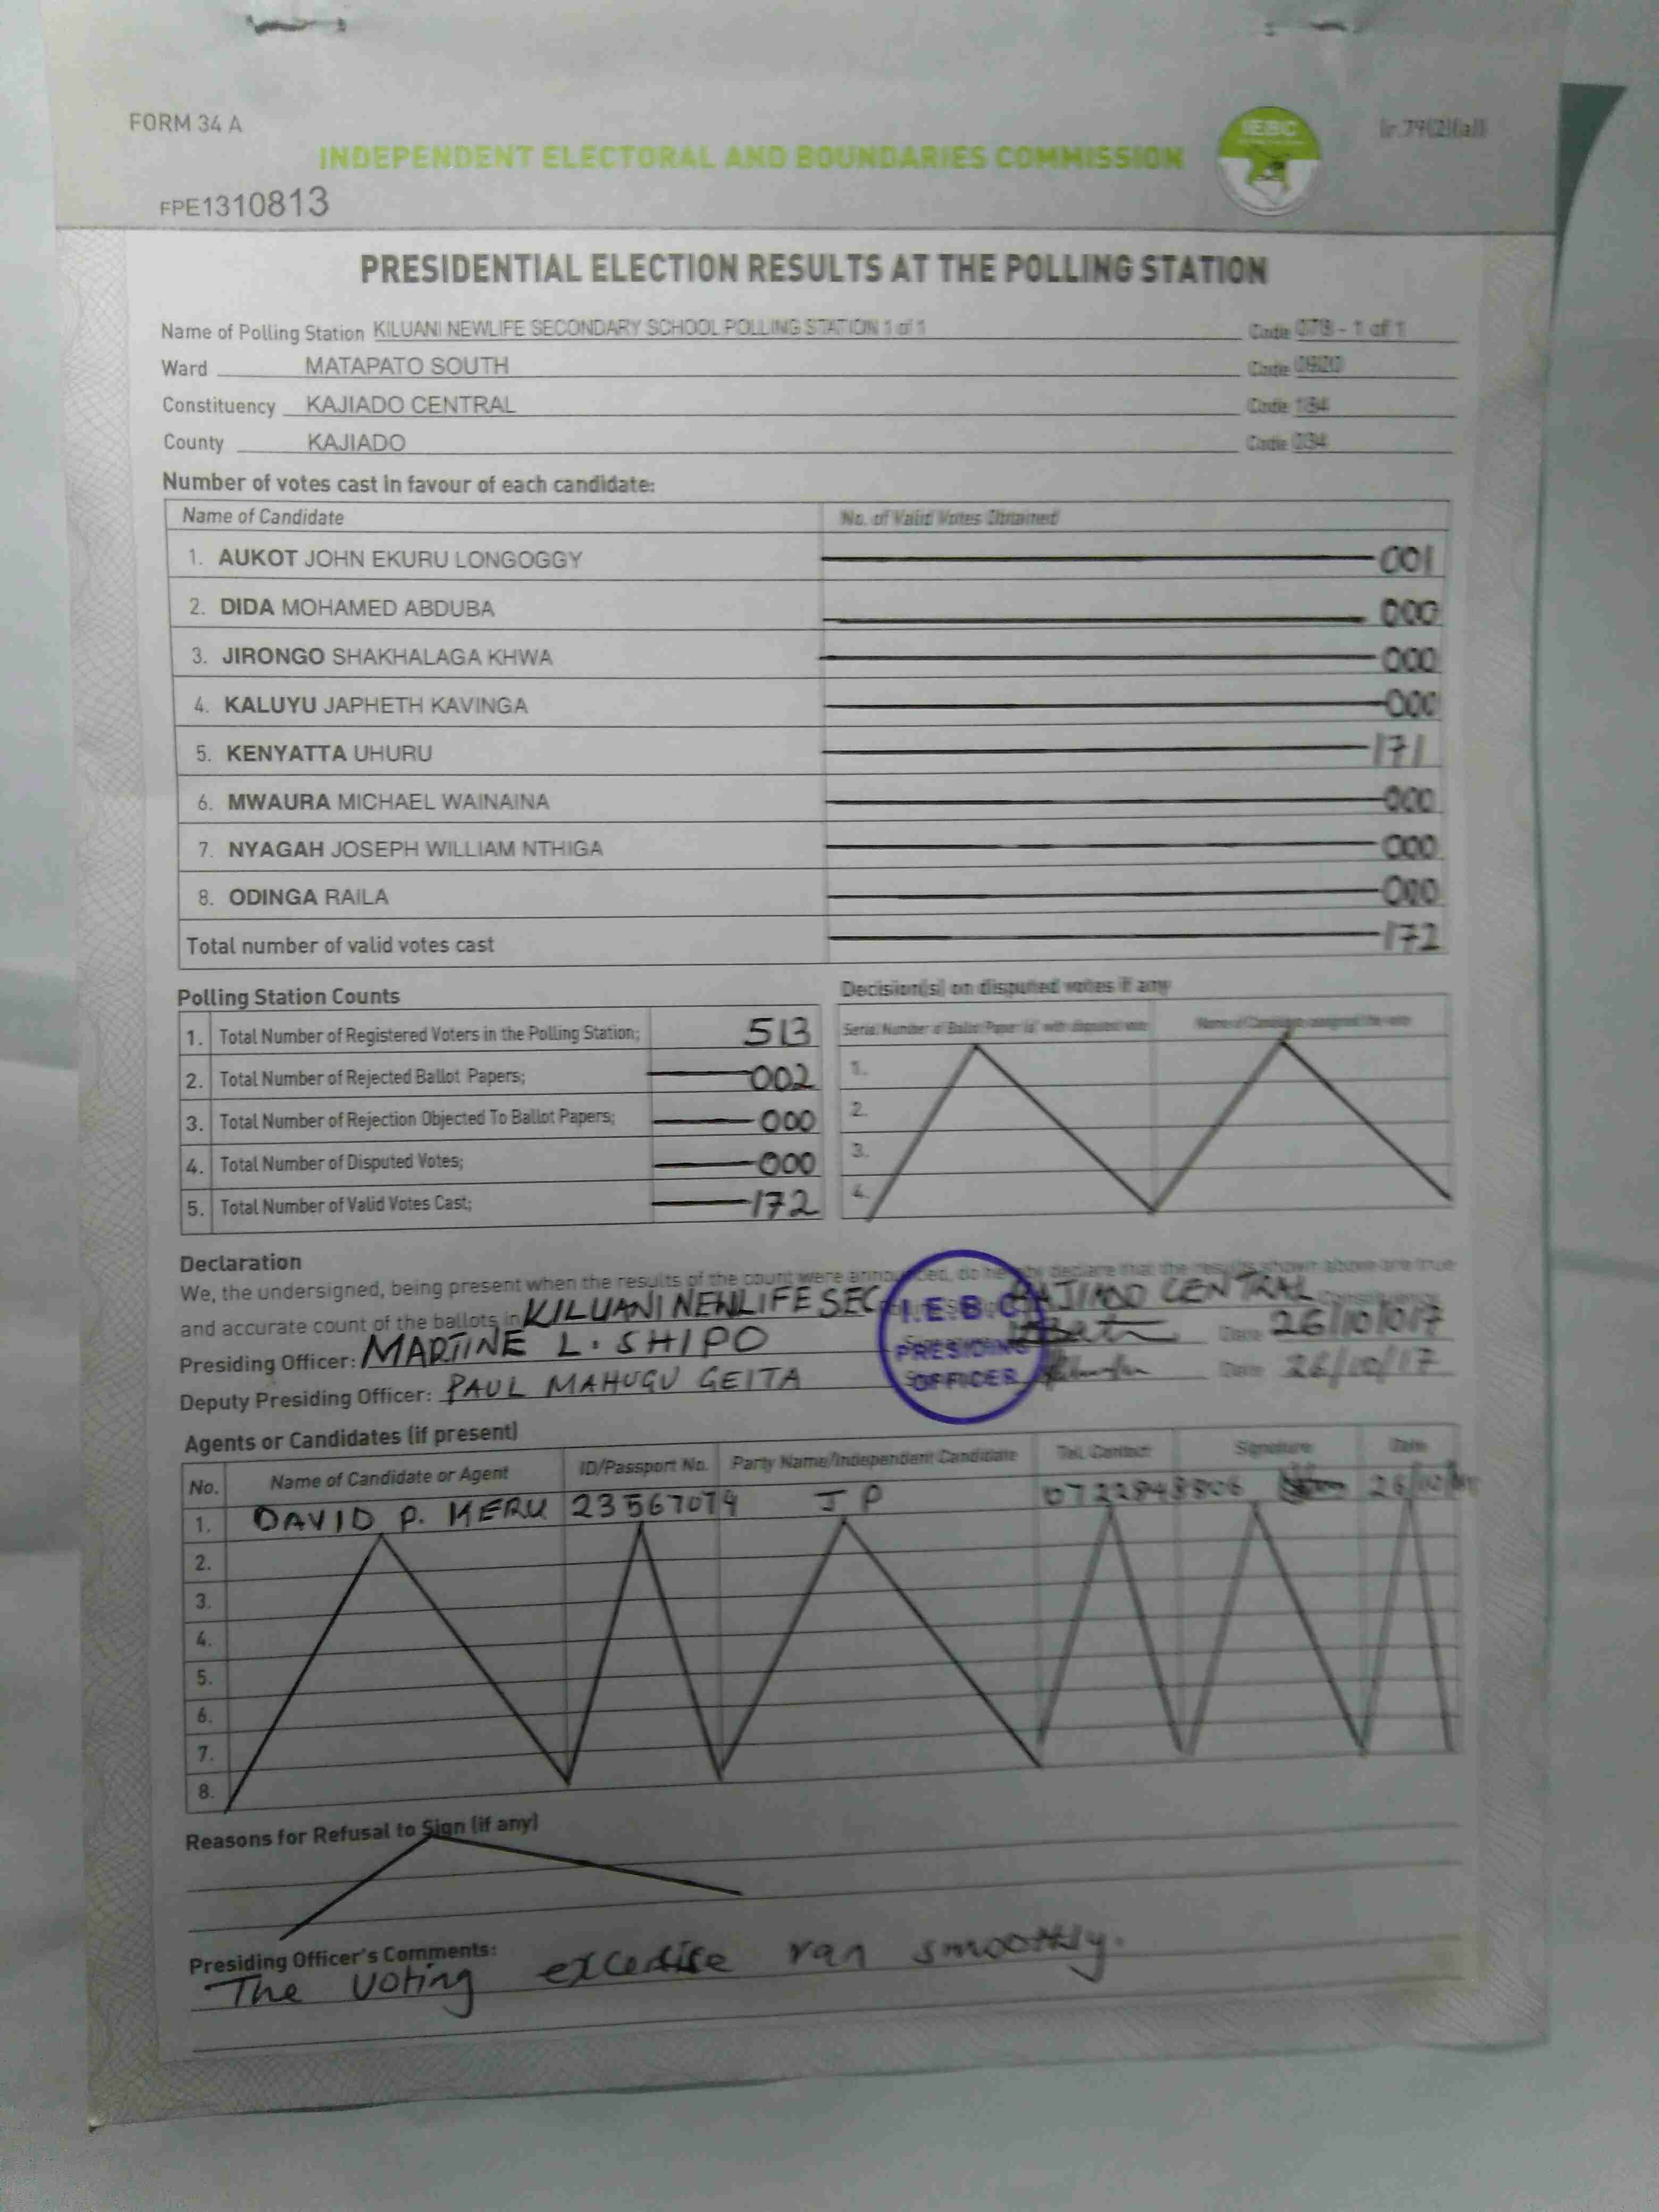 FORM 34 A
IEBC
INDEPENDENT ELECTORAL AND BOUNDARIES COMMISSION
FPE1310813
PRESIDENTIAL ELECTION RESULTS AT THE POLLING STATION
Name of Polling Station KILUANI NEWLIFE SECONDARY SCHOOL POLLING STATION 1 of 1 Code 078 - 1 of 1
Ward MATAPATO SOUTH Code 0920
Constituency KAJIADO CENTRAL Code 184
County KAJIADO Code 034
Number of votes cast in favour of each candidate:
Name of Candidate No. of Valid Votes Obtained
1. AUKOT JOHN EKURU LONGOGGY 001
2. DIDA MOHAMED ABDUBA 000
3. JIRONGO SHAKHALAGA KHWA 000
4. KALUYU JAPHETH KAVINGA 000
5. KENYATTA UHURU 171
6. MWAURA MICHAEL WAINAINA 000
7. NYAGAH JOSEPH WILLIAM NTHIGA 000
8. ODINGA RAILA 000
Total number of valid votes cast 172
Polling Station Counts
1. Total Number of Registered Voters in the Polling Station; 513
2. Total Number of Rejected Ballot Papers; 002
3. Total Number of Rejection Objected To Ballot Papers; 000
4. Total Number of Disputed Votes; 000
5. Total Number of Valid Votes Cast; 172
Decision(s) on disputed votes if any
Serial Number of Ballot Paper (s) with disputed vote Name of Candidate assigned the vote
1.
2.
3.
4.
Declaration
We, the undersigned, being present when the results of the count were announced, do hereby declare that the results shown above are true
and accurate count of the ballots in KILUANI NEWLIFE SEC KAJIADO CENTRAL Constituency
Presiding Officer: MARTINE L. SHIPO Date 26/10/017
Deputy Presiding Officer: PAUL MAHUGU GEITA Date 26/10/17
I.E.B.C
PRESIDING
OFFICER
Agents or Candidates (if present)
No. Name of Candidate or Agent ID/Passport No. Party Name/Independent Candidate Tel. Contact Signature Date
1. DAVID P. KERU 23567079 JP 26/10/
2.
3.
4.
5.
6.
7.
8.
Reasons for Refusal to Sign (if any)
Presiding Officer's Comments:
The voting ran smoothly.